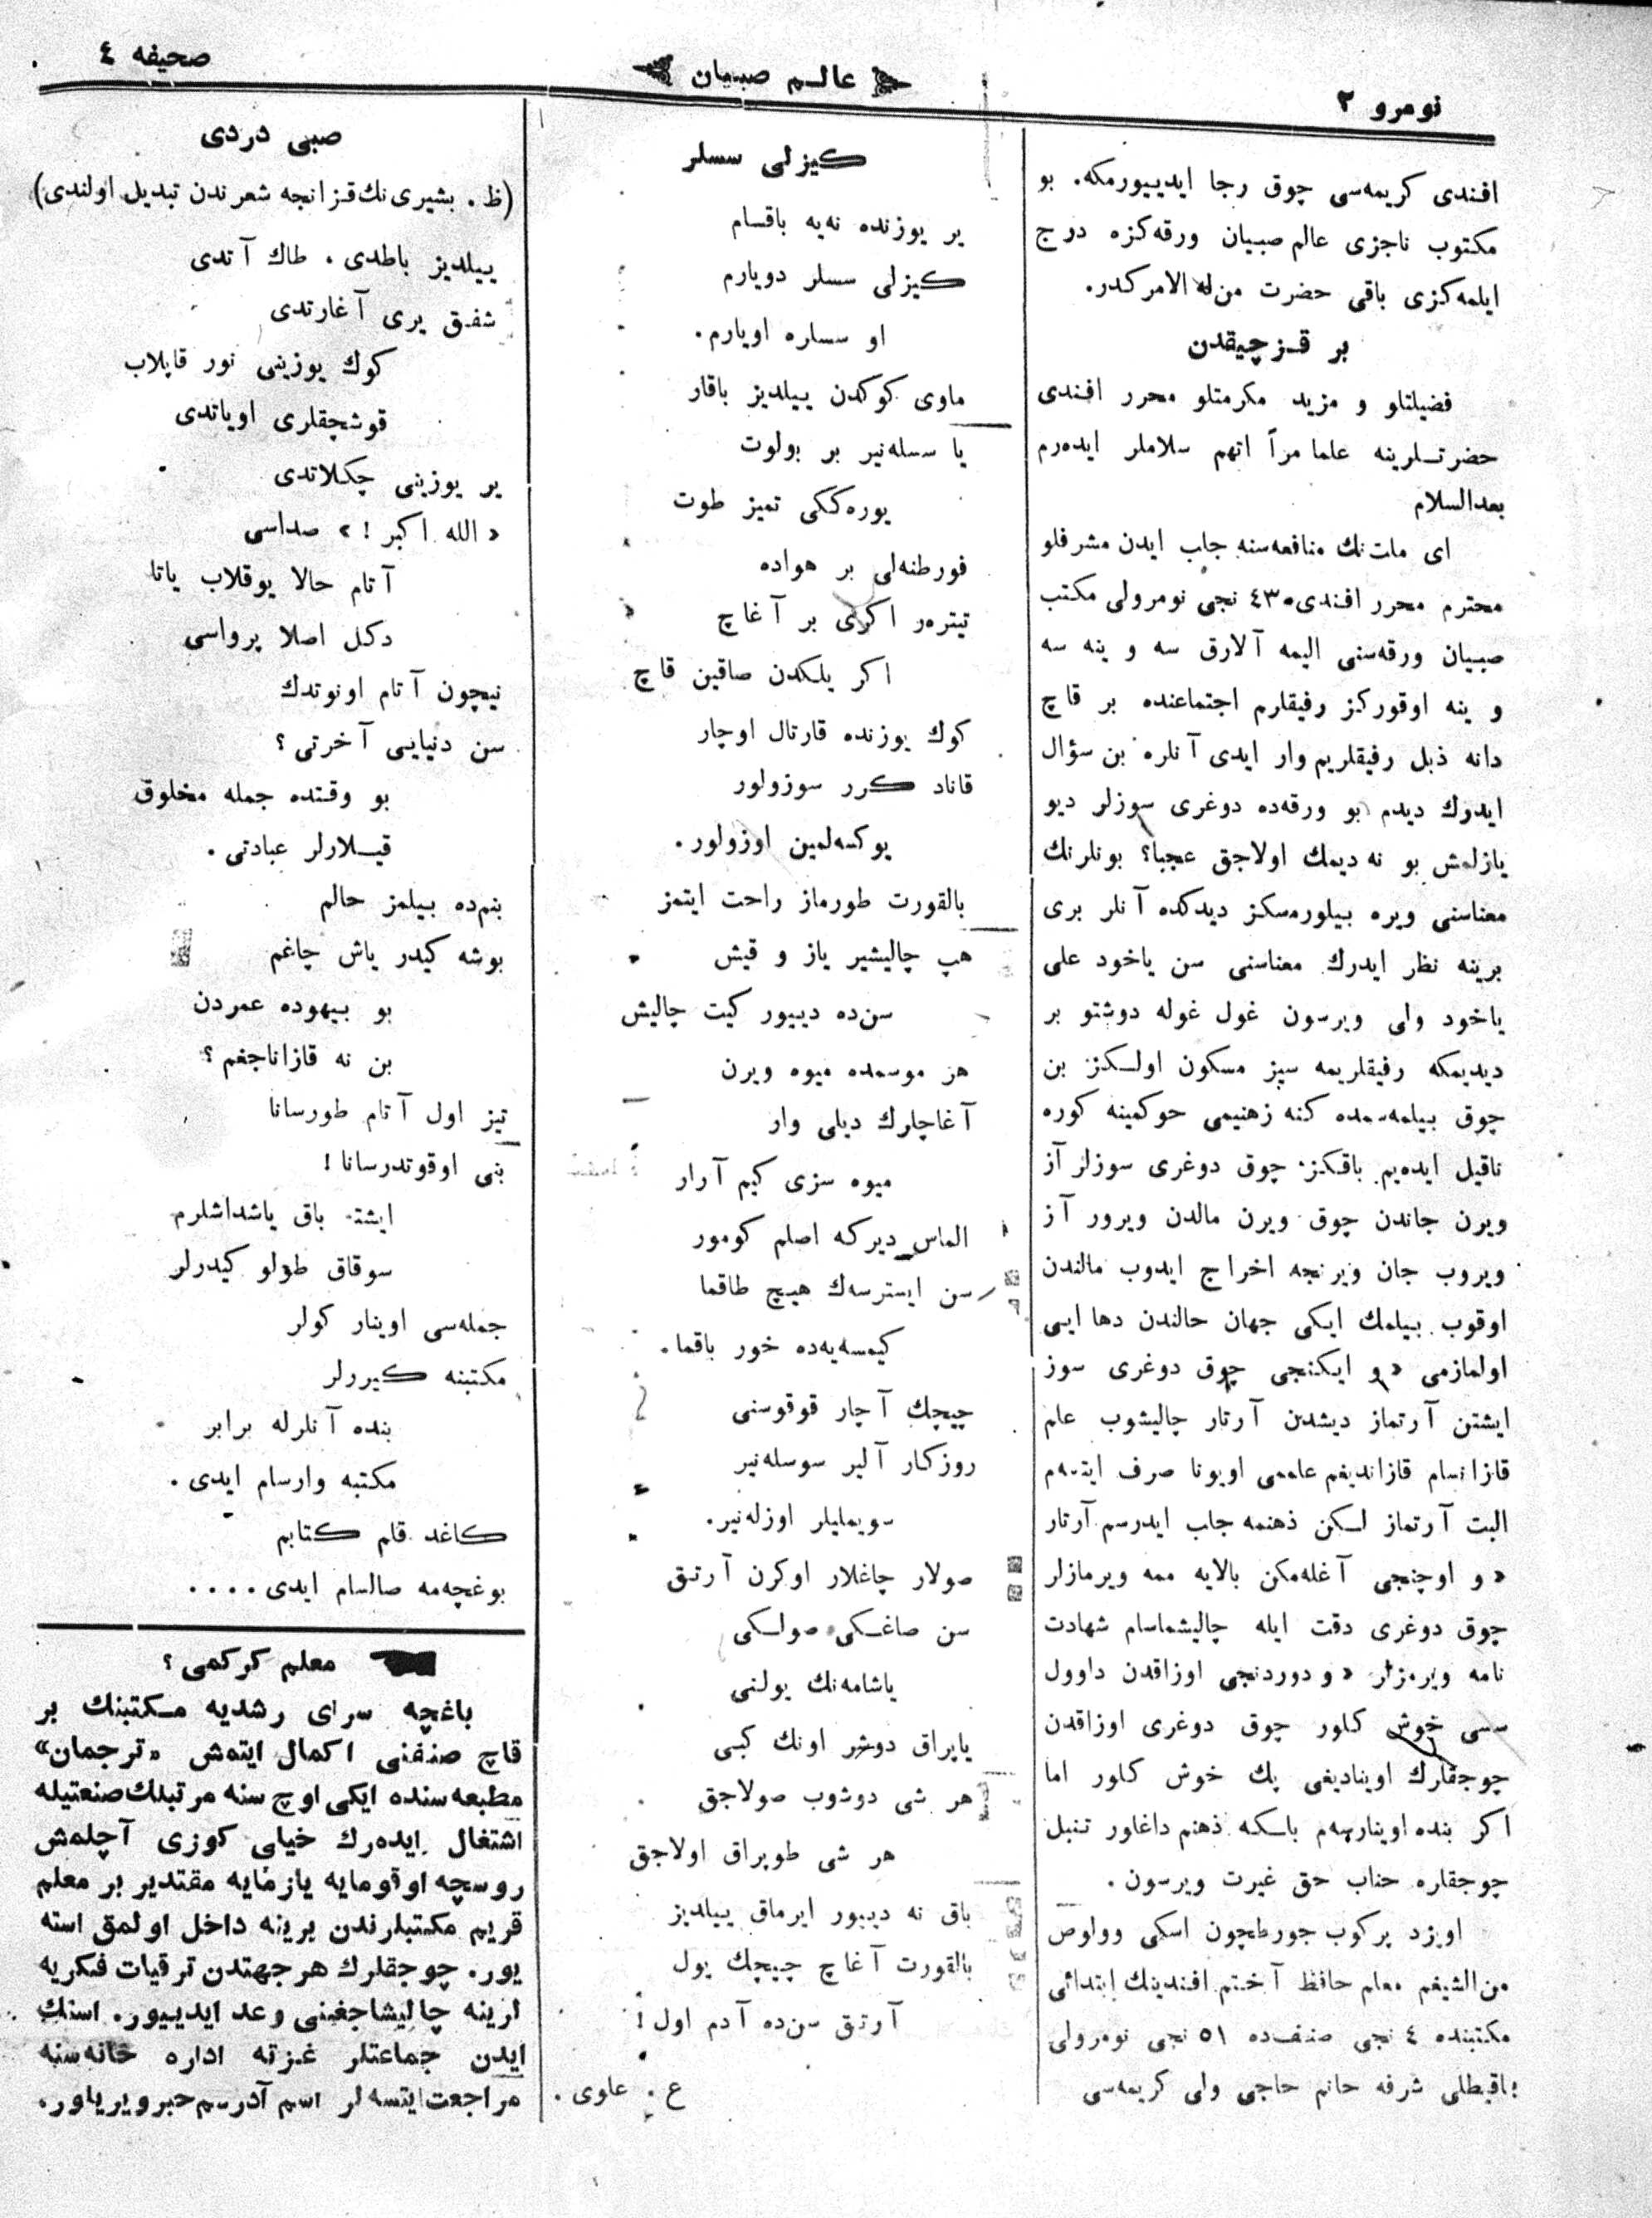 نومرو ٢
عالم صبيان
صحيفه ٤
افندی كريمه‌سی چوق رجا ايدييورمكه. بو
مكتوب ناچزی عالم صبيان ورقه‌كزه درج
ايلمه‌كزی باقی حضرت من‌له الامركدر.
بر قزچيقدن
فضيلتلو و مزيد مكرمتلو محرر افندی
حضرتلرينه علما مرأ اتهم سلاملر ايده‌رم
بعدالسلام
ای ملت‌نك منافعه‌سنه جلب ايدن مشرفلو
محترم محرر افندی ٤٣٠ نجی نومرولی مكتب
صبيان ورقه‌سنی اليمه آلارق سه و ينه سه
و ينه اوقوركز رفيقلرم اجتماعنده بر قاچ
دانه ذبل رفيقلريم وار ايدی آنلره بن سؤال
ايدوك ديدم بو ورقه‌ده دوغری سوزلر ديو
يازلمش بو نه ديمك اولاجق عجبا؟ بونلرنك
معناسنی ويره بيلورمسكز ديدكده آنلر بری
برينه نظر ايدرك معناسنی سن ياخود علی
ياخود ولی ويرسون غول غوله دوشتو بر
ديديمكه رفيقلريمه سيز مسكون اولسكز بن
چوق بيلمه‌سمده كنه زهنيمی حوكمينه كوره
ناقيل ايده‌يم باقكز. چوق دوغری سوزلر آز
ويرن جاندن چوق ويرن مالدن ويرور آز
ويروب جان ويرنجه اخراج ايدوب مالندن
اوقوب بيلمك ايكی جهان حالندن دها ايی
اولمازمی «و ايكنجی چوق دوغری سوز
ايشتن آرتماز ديشدن آرتار چاليشوب علم
قازانسام قازانديغم علممی اويونا صرف ايتسه‌م
البت آرتماز لسكن ذهنمه جلب ايدرسم آرتار
«و اوچنجی آغله‌مكن بالايه ممه ويرمازلر
چوق دوغری دقت ايله چاليشماسام شهادت
نامه ويرمزلر «و دوردنجی اوزاقدن داوول
سسی خوش كلور چوق دوغری اوزاقدن
چوجقلرك اويناديغی پك خوش كلور اما
اكر بنده اوينارسه‌م باسكه ذهنم داغلور تنبل
چوجقلره جناب حق غيرت ويرسون.
اويزد پركوب جورطچون اسكی وولوص
من‌الشيغم معلم حافظ آختم افندينك ابتدائی
مكتبنده ٤ نجی صنف‌ده ٥١ نجی نومرولی
باقبطلی شرفه حانم حاجی ولی كريمه‌سی
كيزلی سسلر
ير يوزنده نه‌يه باقسام
كيزلی سسلر دويارم
او سسلره اويارم.
ماوی كوكدن ييلديز باقار
يا سسله‌نير بر بولوت
يوره‌ككی تميز طوت
فورطنه‌لی بر هواده
تيتره‌ر اكری بر آغاچ
اكر يلكدن صاقين قاچ
كوك يوزنده قارتال اوچار
قاناد كرر سوزولور
يوكسه‌لمين اوزولور.
بالقورت طورماز راحت ايتمز
هپ چاليشير ياز و قيش
سن‌ده دييور كيت چاليش
هر موسمده ميوه ويرن
آغاچلرك ديلی وار
ميوه سزی كيم آرار
الماس ديركه اصلم كومور
سن ايسترسه‌ك هيچ طاقما
كيمسه‌يه‌ده خور باقما.
چيچك آچار قوقوسنی
روزكار آلير سوسله‌نير
سويمليلر اوزله‌نير.
صولار چاغلار اوكرن آرتق
سن صاغكی صولكی
ياشامه‌نك يولنی
ياپراق دوشر اونك كبی
هر شی دوشوب صولاجق
هر شی طوپراق اولاجق
باق نه دييور ايرماق ييلديز
بالقورت آغاچ چيچك يول
آرتق سن‌ده آدم اول!
ع. علوی.
صبی دردی
(ظ. بشيری‌نك قزانجه شعرندن تبديل اولندی)
ييلديز باطدی. طاك آتدی
شفق يری آغارتدی
كوك يوزينی نور قاپلاب
قوشچقلری اوياتدی
ير يوزينی چكلاتدی
«الله اكبر!» صداسی
آتام حالا يوقلاب ياتا
دكل اصلا پرواسی
نيچون آتام اونوتدك
سن دنيايی آخرتی؟
بو وقتده جمله مخلوق
قيلارلر عبادتی.
بنم‌ده بيلمز حالم
بوشه كيدر ياش چاغم
بو بيهوده عمردن
بن نه قازاناجغم؟
تيز اول آتام طورسانا
بنی اوقوتدرسانا!
ايشته باق ياشداشلرم
سوقاق طولو كيدرلر
جمله‌سی اوينار كولر
مكتبنه كيررلر
بنده آنلرله برابر
مكتبه وارسام ايدی.
كاغد قلم كتابم
بوغچه‌مه صالسام ايدی....
معلم كركمی؟
باغچه سرای رشديه مكتبنك بر
قاچ صنفنی اكمال ايتمش «ترجمان»
مطبعه‌سنده ايكی اوچ سنه مرتبلك صنعتيله
اشتغال ايده‌رك خيلی كوزی آچلمش
روسچه اوقومايه يازمايه مقتدير بر معلم
قريم مكتبلرندن برينه داخل اولمق استه
يور. چوجقلرك هر جهتدن ترقيات فكريه
لرينه چاليشاجغنی وعد ايدييور. استك
ايدن جماعتلر غزته اداره خانه‌سنه
مراجعت ايتسه‌لر اسم آدرسم خبر ويريلور.